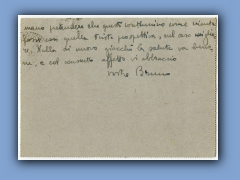 mano pretendere che questi continuino come niente
fosse con quella triste prospettiva, nel caso miglio
re. Nulla di nuovo giacché la salute va bene
ne, e col consueto affetto vi abbraccio
vostro Bruno